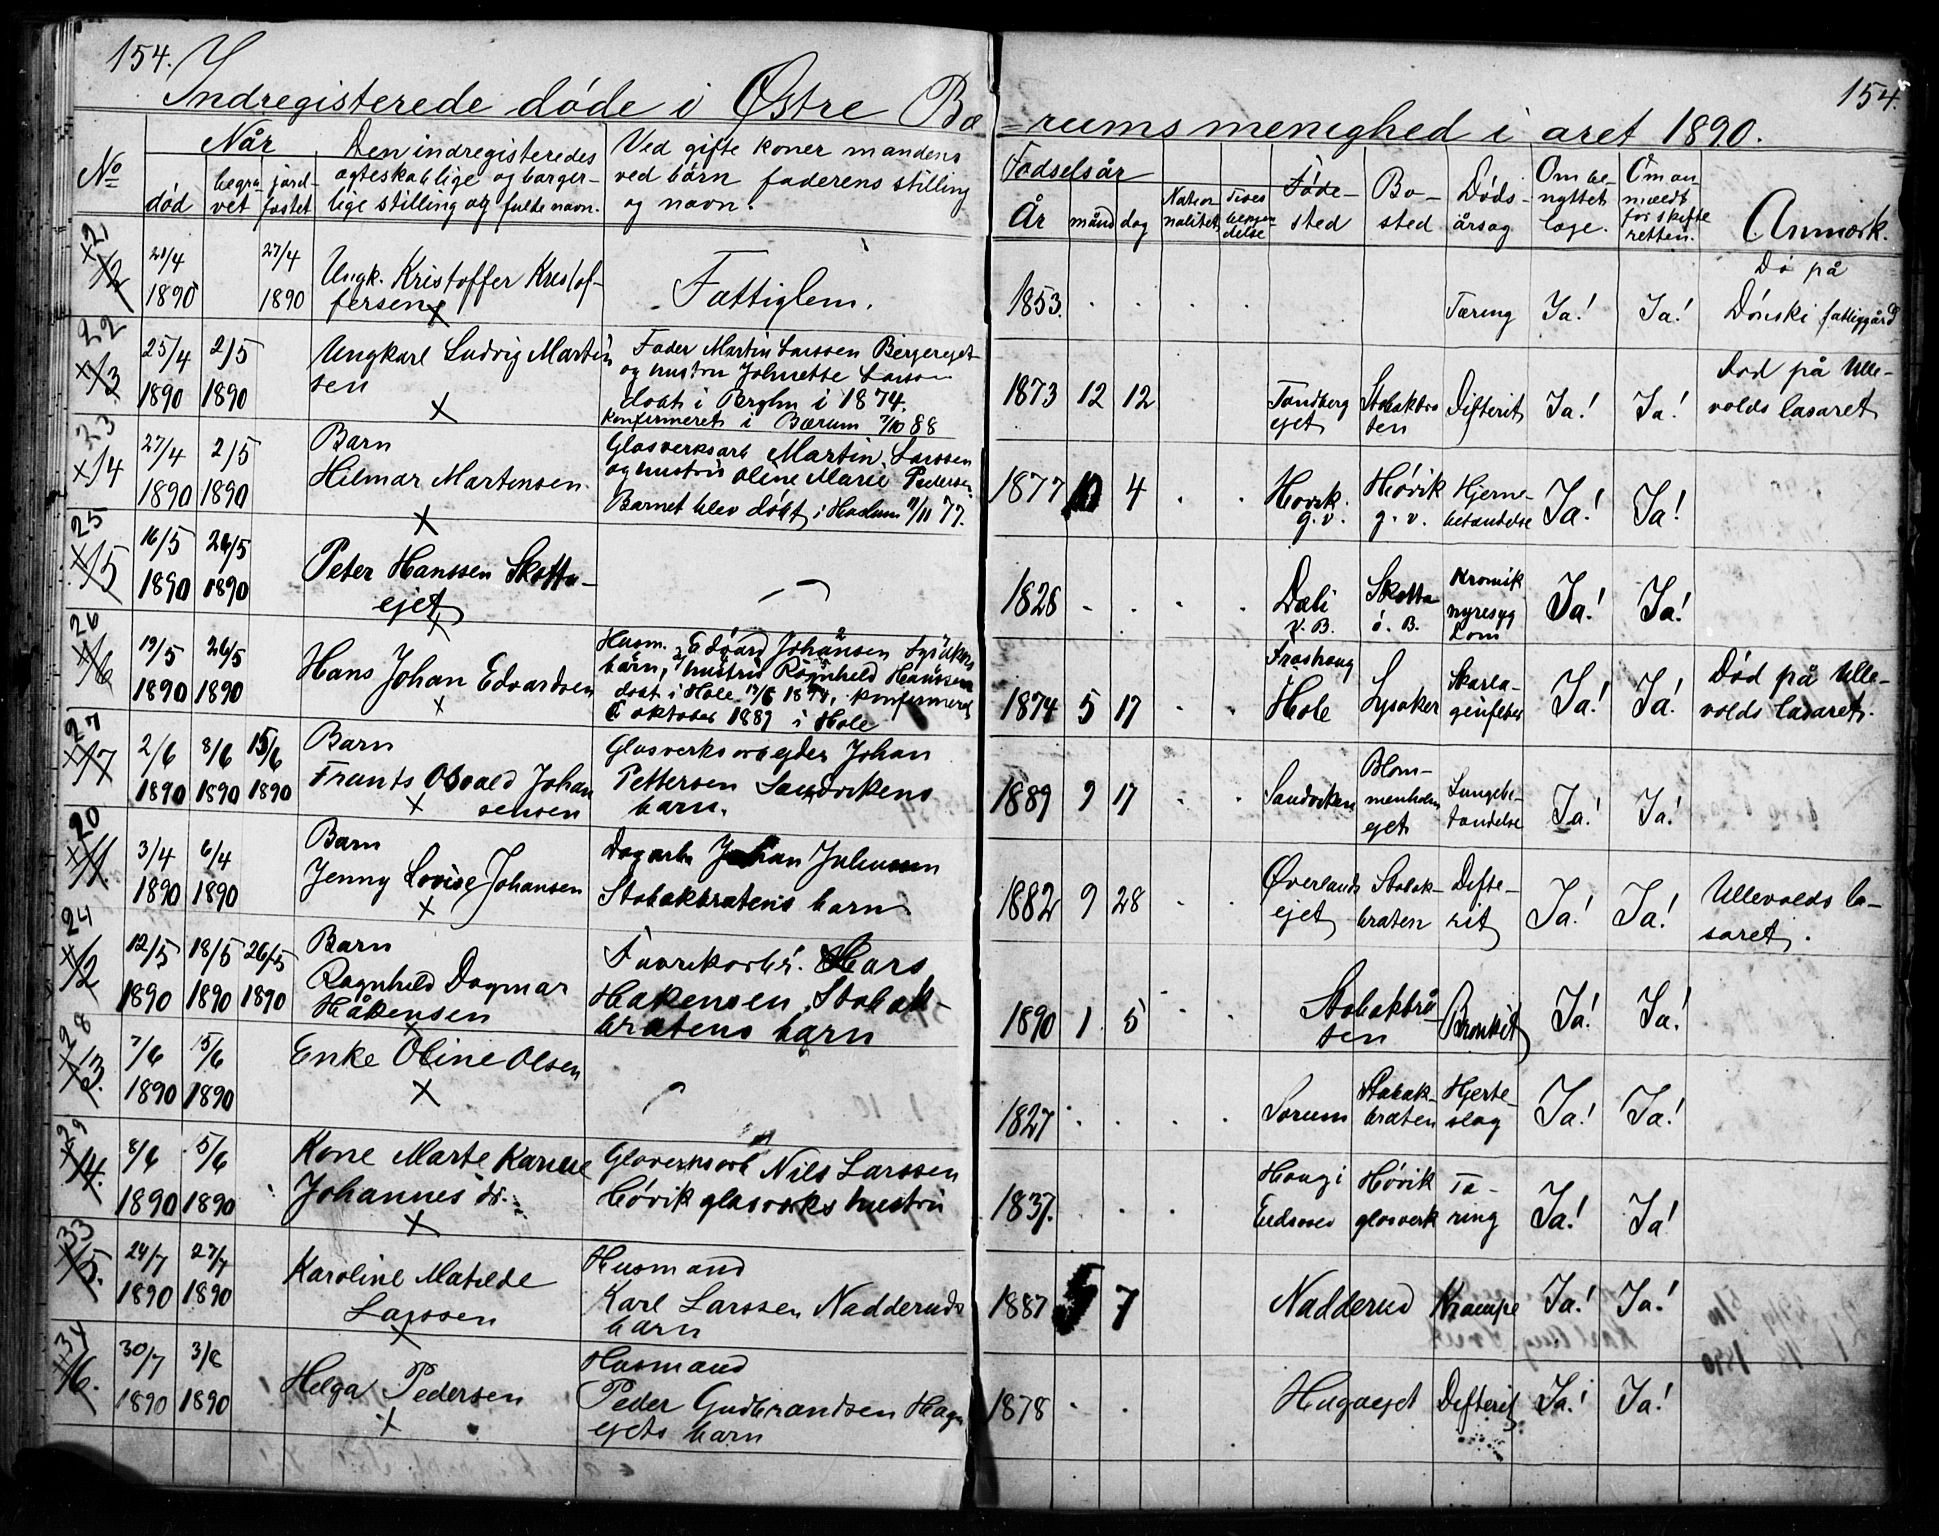 154.
154.
Indregisterede døde i Østre Bærums menighed i aret 1890.
No
Når
død
begravet
jordfæstet
Den indregisteredes
ægteskablige og borger-
lige stilling og fulde navn.
Ved gifte koner mandens
ved børn faderens stilling
og navn.
Fødselsår
År
månd
dag
Natio-
nalitet
Føde-
sted
Bo-
sted
Døds-
årsag
Om be-
nyttet
læge.
Om an-
mældt
for skifte
retten.
Anmærk.
21 12
21/4 1890
27/4 1890
Ungk. Kristoffer Kristof-
fersen
Fattiglem.
1853.
Tæring
Ja!
Ja!
Dø på
Dønski fattiggård
22 13
25/4 1890
2/5 1890
Ungkarl Ludvig Martin
sen
Fader Martin Larssen Bergerejet
og hustru Johnette
døbt i Berghn i 1874.
konfirmeret i Bærum 7/10 88
1873 12 12
Tandberg
ejet
Stabakbrå
ten
Difterit
Ja!
Ja!
Død på Ulle-
volds lasaret
23 14
27/4 1890
2/5 1890
Barn
Hilmar Martensen
Glasverksarb Martin Larssen
og hustru Oline Marie Pedersen
Barnet blev døbt i Haslum 11/11 77.
1877 10 4
Høvik
g. v.
Høvik
g. v.
Hjerne-
betændelse
Ja!
Ja!
25 15
16/5 1890
26/5 1890
Peter Hanssen Skotta-
ejet
1826
Dæli
v. B.
Skotta
ø. B.
Kronisk
nyresyg
dom
Ja!
Ja!
26 16
19/5 1890
26/5 1890
Hans Johan Edvardsen
Husm. Edvard Johansen Lysakers
barn, hustru Ragnhild Hanssen
døbt i Hole 14/6 1874, konfirmeret
oktober 1889 i Hole
1874 5 17
Frøshaug
Hole
Lysaker
Skarla-
gensfeber
Ja!
Ja!
Død på Ulle-
volds lasaret.
27 17
2/6 1890
8/6 1890
15/6 1890
Barn
Frants Osvald Johan
sensen
Glasverksarbejder Johan
Pettersen Sandvikens
barn.
1889 9 17
Sandviken
Blom-
menholm
ejet
Lungebe-
tændelse
Ja!
Ja!
20 11
3/4 1890
6/4 1890
Barn
Jenny Lovise Johansen
Dagarb. Johan Juliussen
Stabakbråtens barn
1882 9 28
Øverlands
ejet
Stabak-
bråten
Difte-
rit
Ja!
Ja!
Ullevolds la-
saret.
24 12
12/5 1890
18/5 1890
26/5 1890
Barn
Ragnhild Dagmar
Håkensen
Fabrikarbr. Hars
Hakensen, Stabak-
bråtens barn
1890 1 5
Stabakbrå
ten
Bronkit
Ja!
Ja!
28 13.
7/6 1890
15/6 1890
Enke Oline Olsen
1827
Sørum
Stabak-
bråten
Hjerte-
slag
Ja!
Ja!
29 14.
8/6 1890
15/6 1890
Kone Marte Karine
Johannes dr.
Glasverksarb Nils Larssen
Høvik glasverks hustru
1837.
Haug i
Eidsvold
Høvik
glasverk
Tæ-
ring
Ja!
Ja!
33 15.
24/7 1890
27/7 1890
Karoline Matilde
Larssen
Husmand
Karl Larssen Nadderuds
barn
1887 5 7
Nadderud
Krampe
Ja!
Ja!
34 16.
30/7 1890
3/8 1890
Helga Pedersen
Husmand
Peder Gudbrandsen Haga
ejets barn
1878
Hagaejet
Difterit
Ja!
Ja!